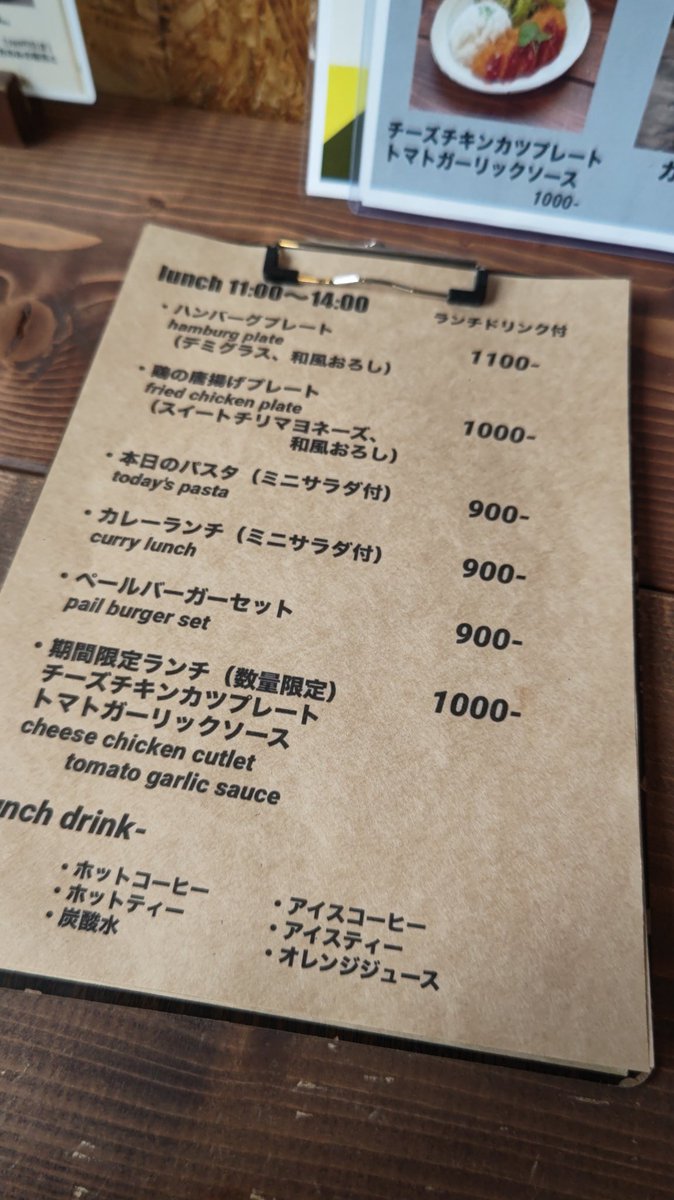 チーズチキンカツプレート
トマトガーリックソース
1000-
lunch 11:00〜14:00
ランチドリンク付
・ハンバーグプレート
hamburg plate
(デミグラス、和風おろし)
1100-
・鶏の唐揚げプレート
fried chicken plate
(スイートチリマヨネーズ、
和風おろし)
1000-
・本日のパスタ(ミニサラダ付)
today's pasta
900-
・カレーランチ(ミニサラダ付)
curry lunch
900-
・ペールバーガーセット
pail burger set
900-
・期間限定ランチ(数量限定)
チーズチキンカツプレート
トマトガーリックソース
1000-
cheese chicken cutlet
tomato garlic sauce
unch drink-
・ホットコーヒー
・ホットティー
・炭酸水
・アイスコーヒー
・アイスティー
・オレンジジュース